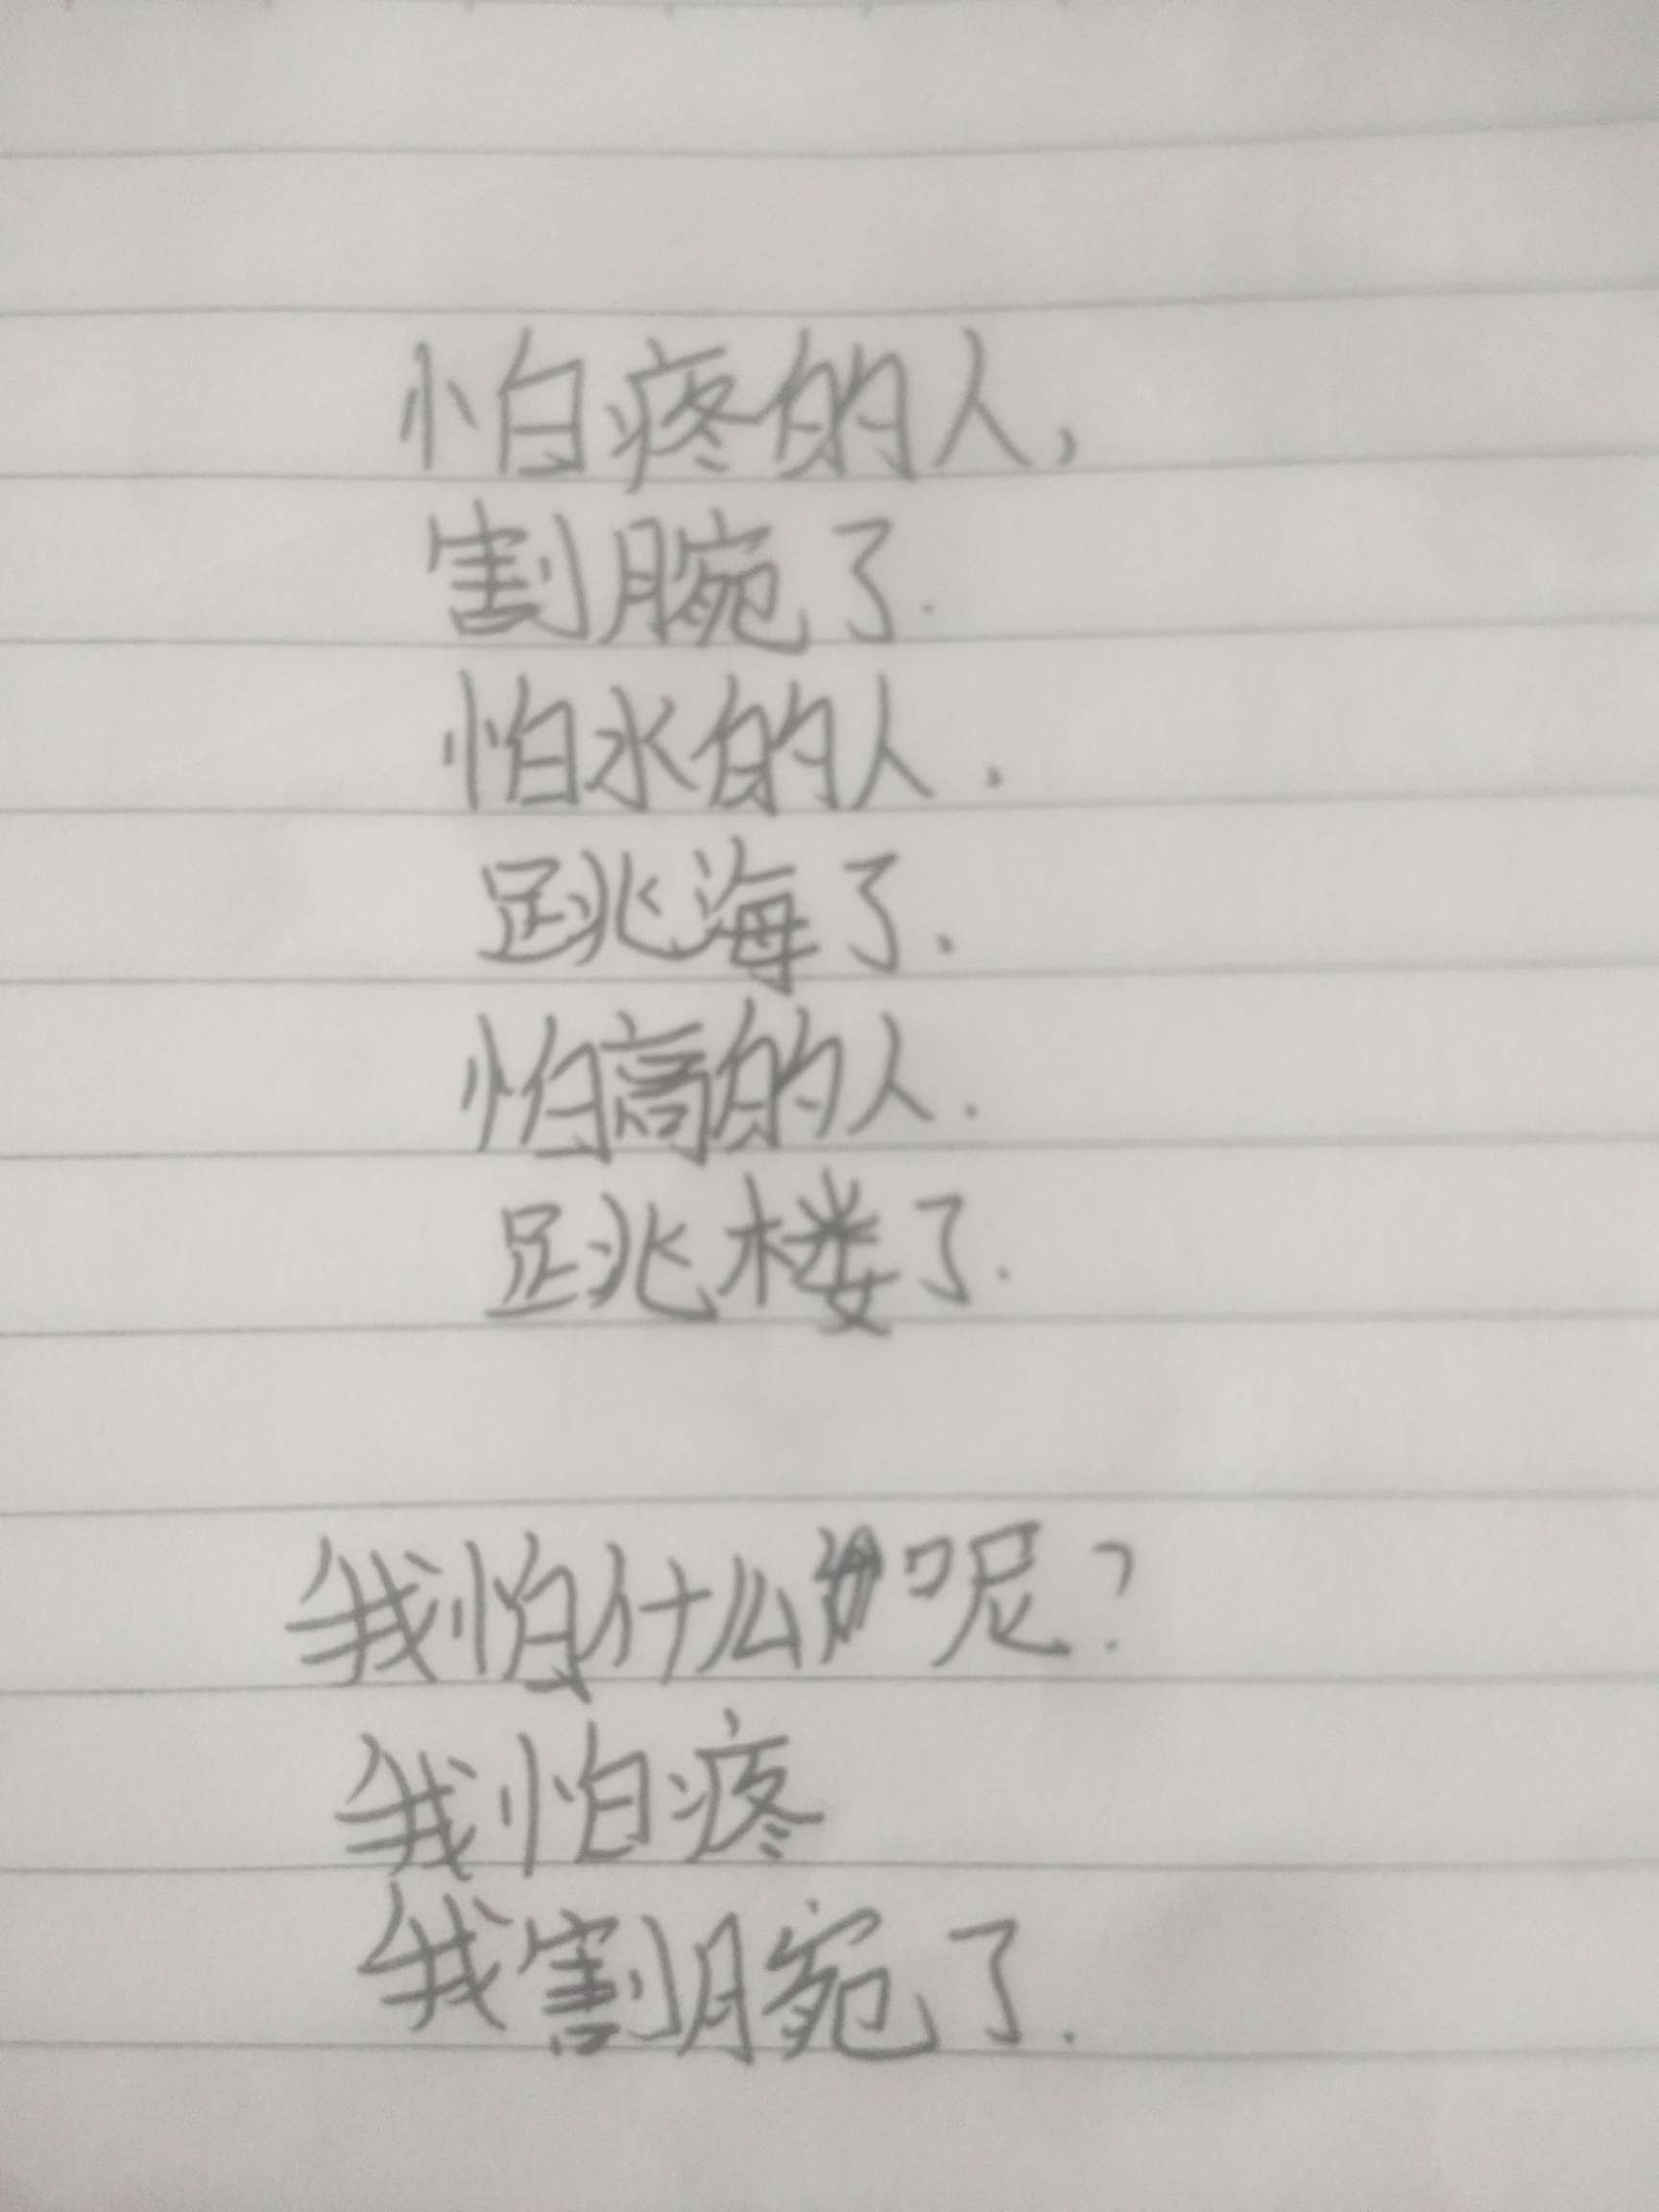 怕疼的人，
割腕了.
怕水的人，
跳海了.
怕高的人.
跳楼了.
我怕什么呢？
我怕疼
我割腕了.